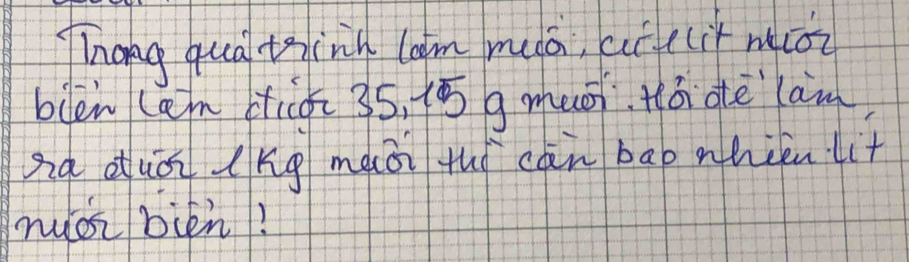 Trong quá trình làm muối, cứ 1 lít nước
biển làm được 35,15 g muối. Hỏi để làm
ra được 1 Kg muối thì cần bao nhiêu lít
nước biển!